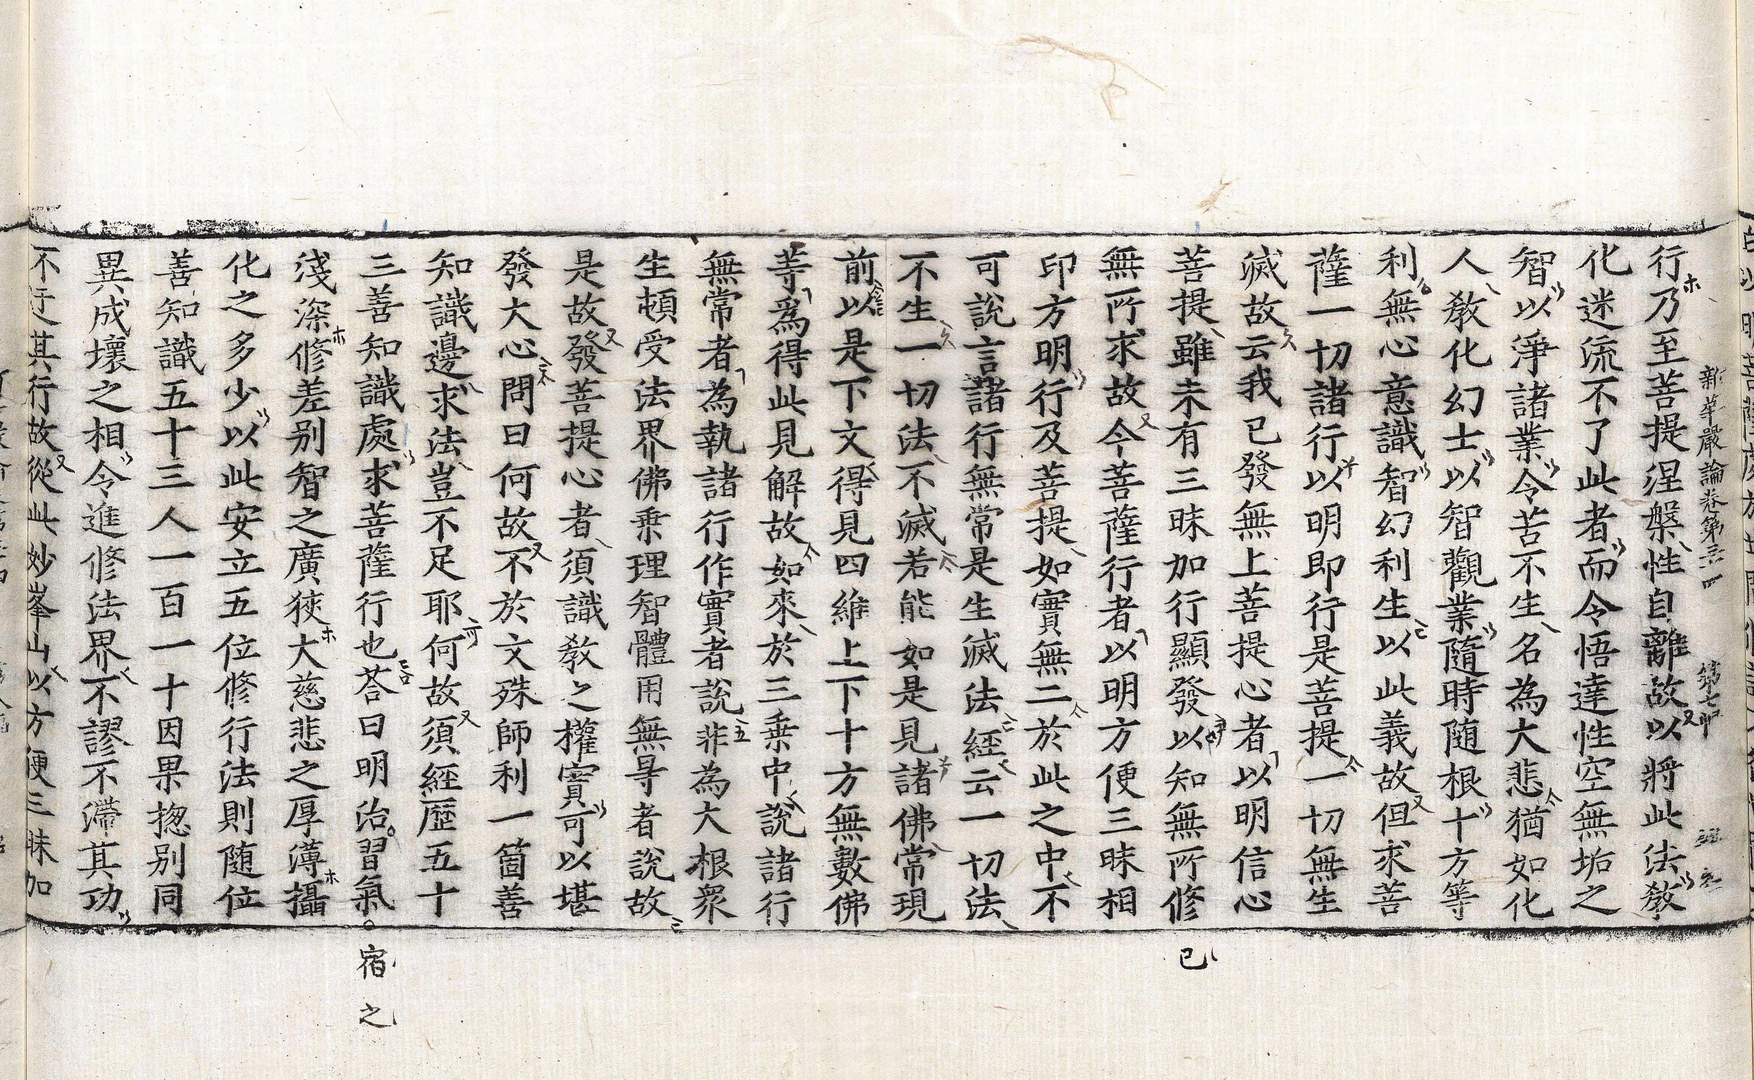 新華嚴論卷第三四 第七
行乃至菩提涅槃性自離故以將此法教
化迷流不了此者而令悟達性空無垢之
智以淨諸業令苦不生名為大悲猶如化
人教化幻士以智觀業隨時随根十方等
利無心意識智幻利生以此義故但求菩
薩一切諸行以明即行是菩提一切無生
滅故云我已發無上菩提心者以明信心
菩提雖未有三昧加行顯發以知無所修
已
無所求故今菩薩行者以明方便三昧相
印方明行及菩提如實無二於此之中不
可說言諸行無常是生滅法經云一切法
不生一切法不滅若能如是見諸佛常現
前以是下文得見四維上下十方無數佛
等為得此見解故如來於三乗中說諸行
無常者為執諸行作實者說非為大根衆
生頓受法界佛乗理智體用無㝵者說故
是故發菩提心者須識教之權實可以堪
發大心問曰何故不於文殊師利一箇善
知識邊求法豈不足耶何故須經歷五十
三善知識處求菩薩行也荅曰明治習氣
宿之
淺深修差别智之廣狹大慈悲之厚薄攝
化之多少以此安立五位修行法則随位
善知識五十三人一百一十因果揔别同
異成壞之相令進修法界不謬不滯其功
不行其行故從此妙峯山以方便三昧加